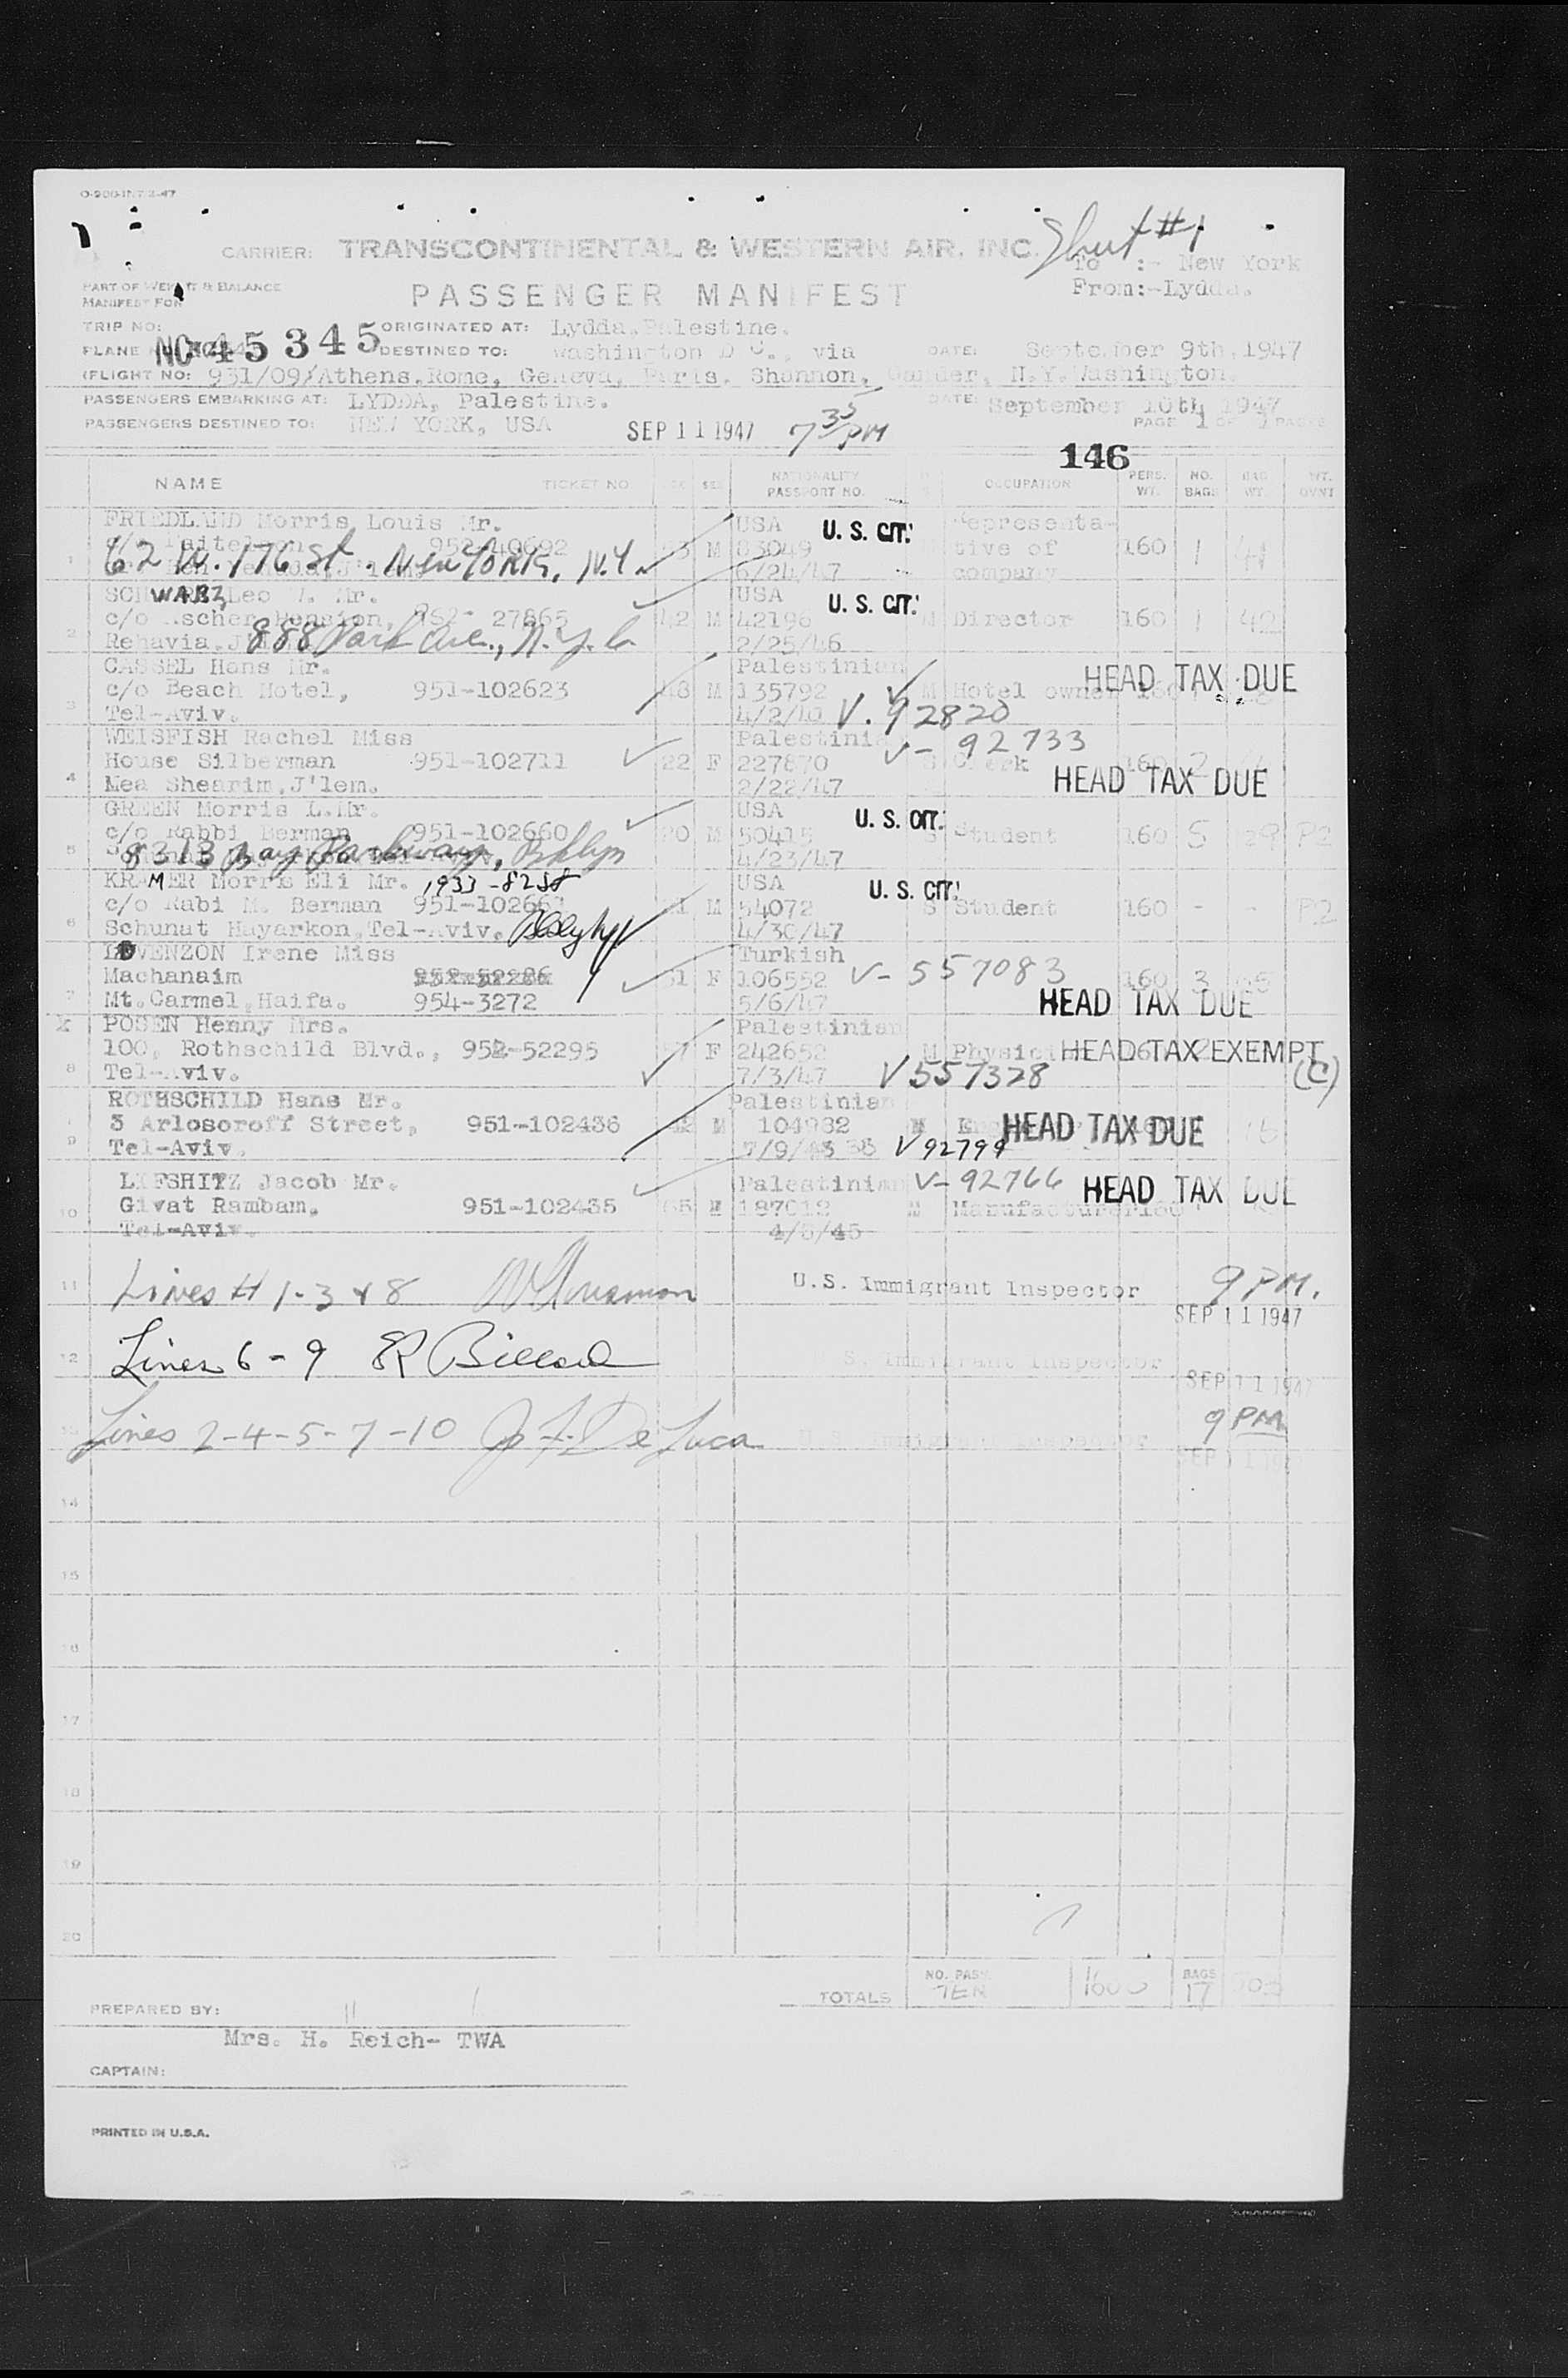 O-908-INT 2-47
CARRIER: TRANSCONTINENTAL & WESTERN AIR, INC. Sheet #1
To :- New York
PART OF WEIGHT & BALANCE
MANIFEST FORM
PASSENGER MANIFEST
From:-Lydda.
TRIP NO:
ORIGINATED AT: Lydda.Palestine.
PLANE NC 45345
DESTINED TO: Washington D C., via DATE: September 9th,1947
(FLIGHT NO: 931/09) Athens.Rome, Geneva, Paris. Shannon, Gander, N.Y.Washington.
PASSENGERS EMBARKING AT: LYDDA, Palestine. DATE: September 10th 1947
PASSENGERS DESTINED TO: NEW YORK, USA SEP 11 1947 7 35 PM PAGE 1 OF PAGES
146
NAME TICKET NO. SEX NATIONALITY PASSPORT NO. OCCUPATION PERS. WT. NO. BAGS BAG WT. WT. OVNT
FRIEDLAND Morris Louis Mr. USA U. S. CIT. Representa-
952-40692 M 83049 tive of 160 1 41
62 W. 176 St. New York, N.Y.
1 6/24/47 company
SCHWARZ Leo W. Mr. USA U. S. CIT.
c/o Ascher Pension, 952- 27865 42 M 42196 M Director 160 1 42
2 Rehavia.J'lem 888 Park Ave., N.Y.C. 2/25/46
CASSEL Hans Mr. Palestinian HEAD TAX DUE
c/o Beach Hotel, 951-102623 48 M 135792 M Hotel owner 160
3 Tel-Aviv. V. 92820
WEISFISH Rachel Miss Palestinian V- 92733
House Silberman 951-102711 22 F 227870 S Clerk 160 2
4 Mea Shearim,J'lem. 2/22/47 HEAD TAX DUE
GREEN Morris L.Mr. USA U. S. CIT.
c/o Rabbi Berman 951-102660 20 M 50415 S Student 160 5 29 P2
5 8313 Bay Parkway, Bklyn 4/23/47
KRAMER Morris Eli Mr. 1933 - 82 St USA U. S. CIT.
c/o Rabi M. Berman 951-102661 M 54072 S Student 160 - - P2
6 Schunat Hayarkon,Tel-Aviv. Bklyn NY 4/30/47
LOVENZON Irene Miss Turkish
Machanaim 952-52286 31 F 106552 V- 557083 160 3
7 Mt.Carmel,Haifa. 954-3272 5/6/47 HEAD TAX DUE
X POSEN Henny Mrs. Palestinian
100, Rothschild Blvd., 952-52295 F 242652 M Physician HEAD TAX EXEMPT (C)
8 Tel-Aviv. 7/3/47 V 557328
ROTHSCHILD Hans Mr. Palestinian
3 Arlosoroff Street, 951-102436 42 M 104982 M HEAD TAX DUE
9 Tel-Aviv. V 92799
LIFSHITZ Jacob Mr. Palestinian V- 92766 HEAD TAX DUE
10 Givat Rambam. 951-102435 65 M 187012 M Manufacturer 160
Tel-Aviv. 4/5/45
11 Lines # 1-3 & 8 U.S. Immigrant Inspector 9 PM.
SEP 11 1947
12 Lines 6 - 9 S. Immigrant Inspector
SEP 11 1947
13 Lines 2-4-5-7-10 J. F. De Luca Immigrant Inspector 9 PM
14
15
16
17
18
19
20
TOTALS NO. PASS. TEN 1600 BAGS 17
PREPARED BY:
Mrs. H. Reich- TWA
CAPTAIN:
PRINTED IN U.S.A.